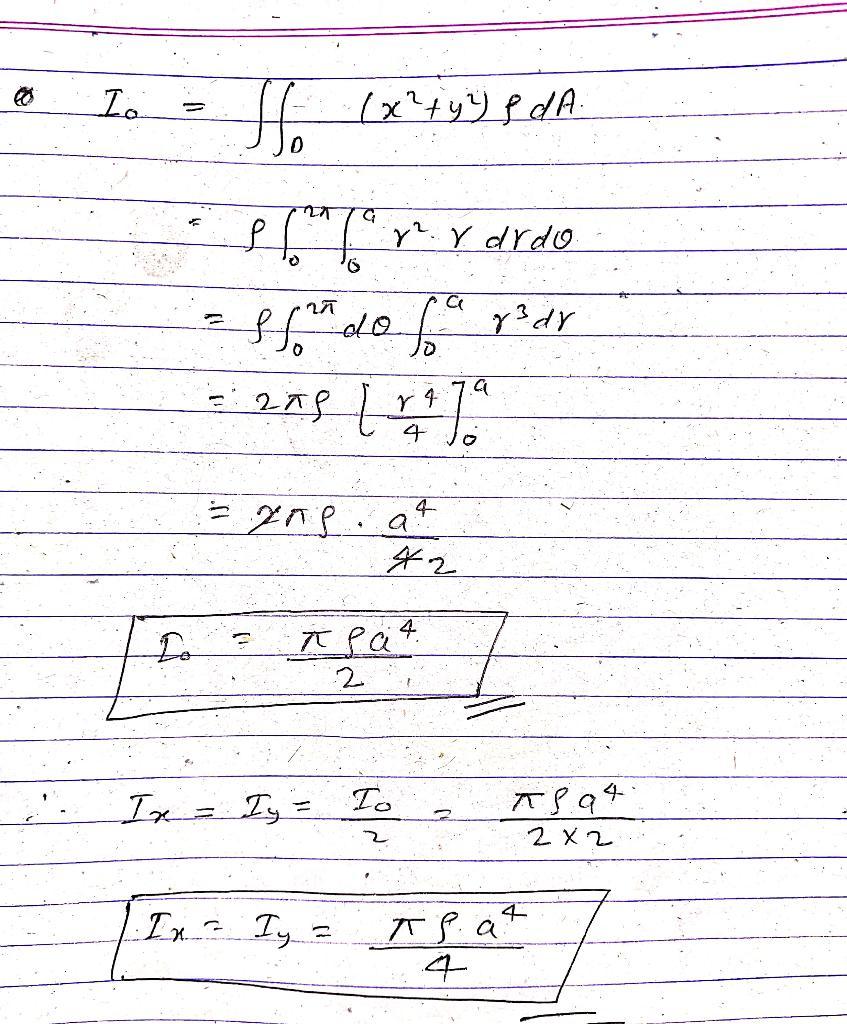 I₀ = ∬_D (x²+y²) ρ dA.
= ρ ∫₀^{2π} ∫₀^a r². r dr dθ
= ρ ∫₀^{2π} dθ ∫₀^a r³ dr
= 2πρ [r⁴/4]₀^a
= 2πρ . a⁴/4 2
I₀ = πρa⁴/2
∴ Iₓ = I_y = I₀/2 = πρa⁴/2×2
Iₓ = I_y = πρa⁴/4